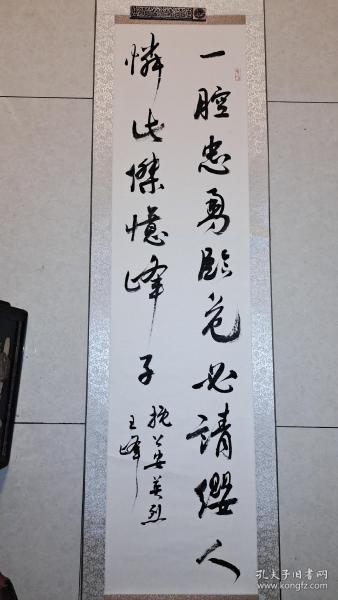 一腔忠勇臨危必請纓人
憐此傑憶峰子
挽公安英烈
王峰
孔夫子旧书网
www.kongfz.com